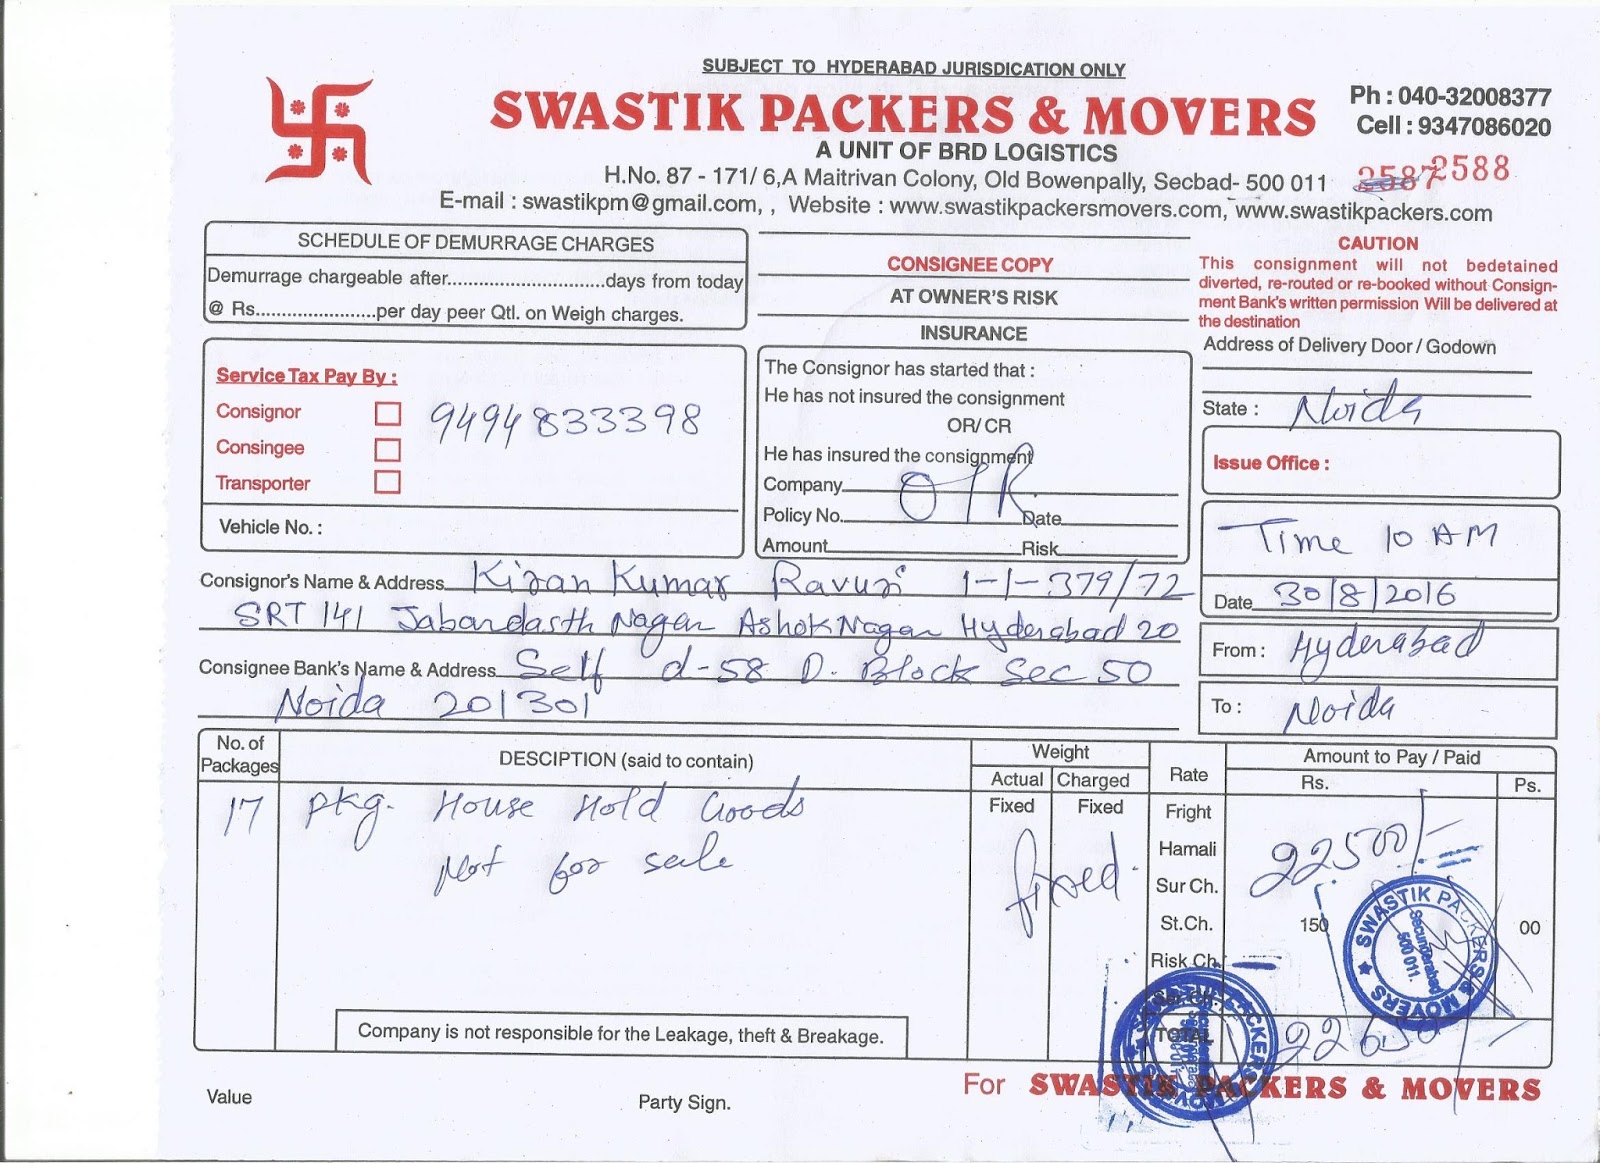 SUBJECT TO HYDERABAD JURISDICATION ONLY
SWASTIK PACKERS & MOVERS
Ph : 040-32008377
Cell : 9347086020
A UNIT OF BRD LOGISTICS
H.No. 87 - 171/ 6,A Maitrivan Colony, Old Bowenpally, Secbad- 500 011
2587 2588
E-mail : swastikpm@gmail.com, , Website : www.swastikpackersmovers.com, www.swastikpackers.com
SCHEDULE OF DEMURRAGE CHARGES
Demurrage chargeable after..............................days from today
@ Rs.......................per day peer Qtl. on Weigh charges.
CONSIGNEE COPY
AT OWNER'S RISK
INSURANCE
CAUTION
This consignment will not bedetained
diverted, re-routed or re-booked without Consign-
ment Bank's written permission Will be delivered at
the destination
Address of Delivery Door / Godown
State : Noida
Service Tax Pay By :
Consignor
Consingee
Transporter
9494833398
Vehicle No. :
The Consignor has started that :
He has not insured the consignment
OR/ CR
He has insured the consignment
Company
Policy No. Date
Amount Risk
Issue Office :
Time 10 AM
Date 30/8/2016
From : Hyderabad
To : Noida
Consignor's Name & Address Kiran Kumar Ravuri 1-1-379/72
SRT 141 Jabandasth Nagar Ashok Nagar Hyderabad 20
Consignee Bank's Name & Address Self d-58 D. Block Sec 50
Noida 201301
No. of Packages
DESCIPTION (said to contain)
Weight
Actual Charged
Rate
Amount to Pay / Paid
Rs. Ps.
17 Pkg. House Hold Goods
Not for sale
Fixed Fixed
fixed
Fright
Hamali
22500/-
Sur Ch.
St.Ch. 150 00
Risk Ch.
TOTAL 22650
SWASTIK PACKERS & MOVERS
Secunderabad
500 011.
Company is not responsible for the Leakage, theft & Breakage.
For SWASTIK PACKERS & MOVERS
Value
Party Sign.